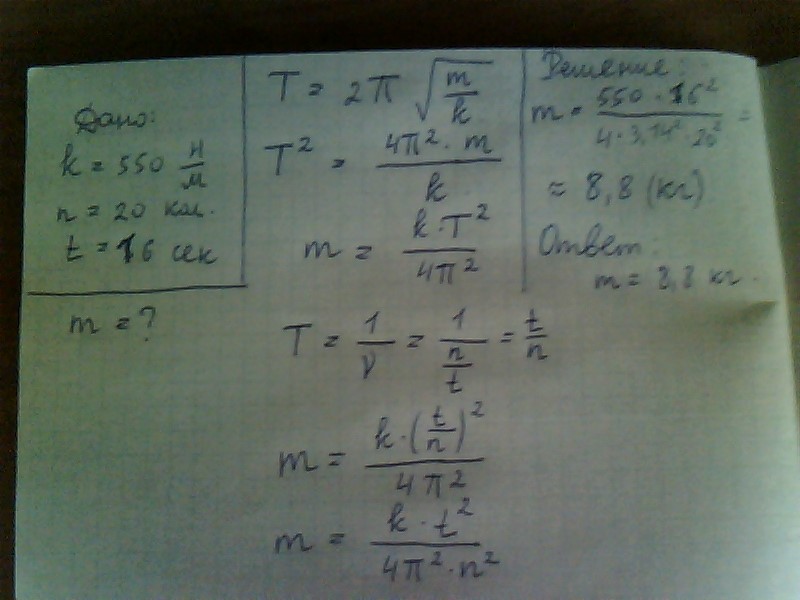 Дано:
k = 550 Н/м
n = 20 кол.
t = 16 сек
m = ?
T = 2π √(m/k)
T² = (4π² · m)/k
m = (k · T²)/(4π²)
T = 1/ν = 1/(n/t) = t/n
m = (k · (t/n)²)/(4π²)
m = (k · t²)/(4π² · n²)
Решение:
m = (550 · 16²)/(4 · 3,14² · 20²) =
≈ 8,8 (кг)
Ответ:
m = 8,8 кг.